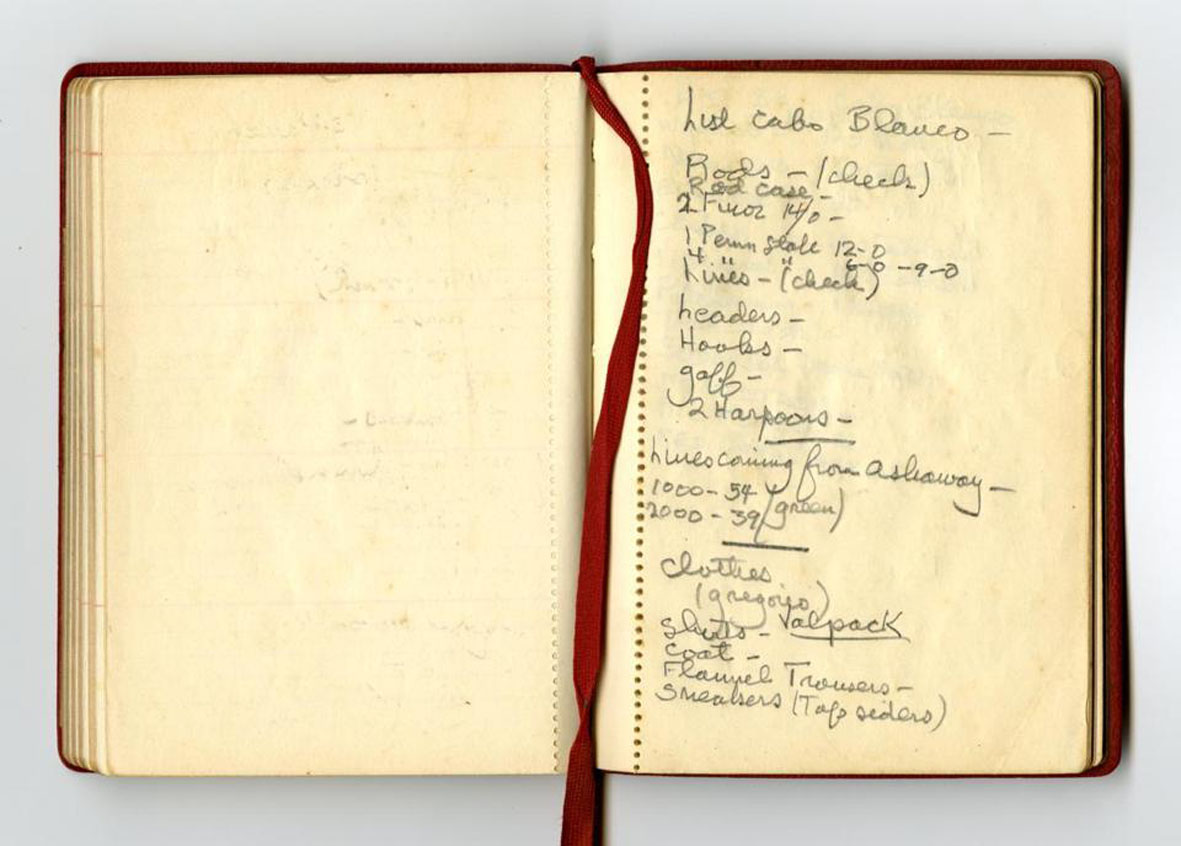 List Cabo Blanco –
Rods – (check)
Rod case –
2 Finor 14/0 –
1 Penn State 12-0
4 " " 6-0 – 9-0
Lines – (check)
Leaders –
Hooks –
gaff –
2 Harpoons –
Lines coming from Ashaway –
1000 – 54 (green)
2000 – 39
Clothes
(gregorio)
Shirts – Valpack
Coat –
Flannel Trousers –
Sneakers (Top siders)